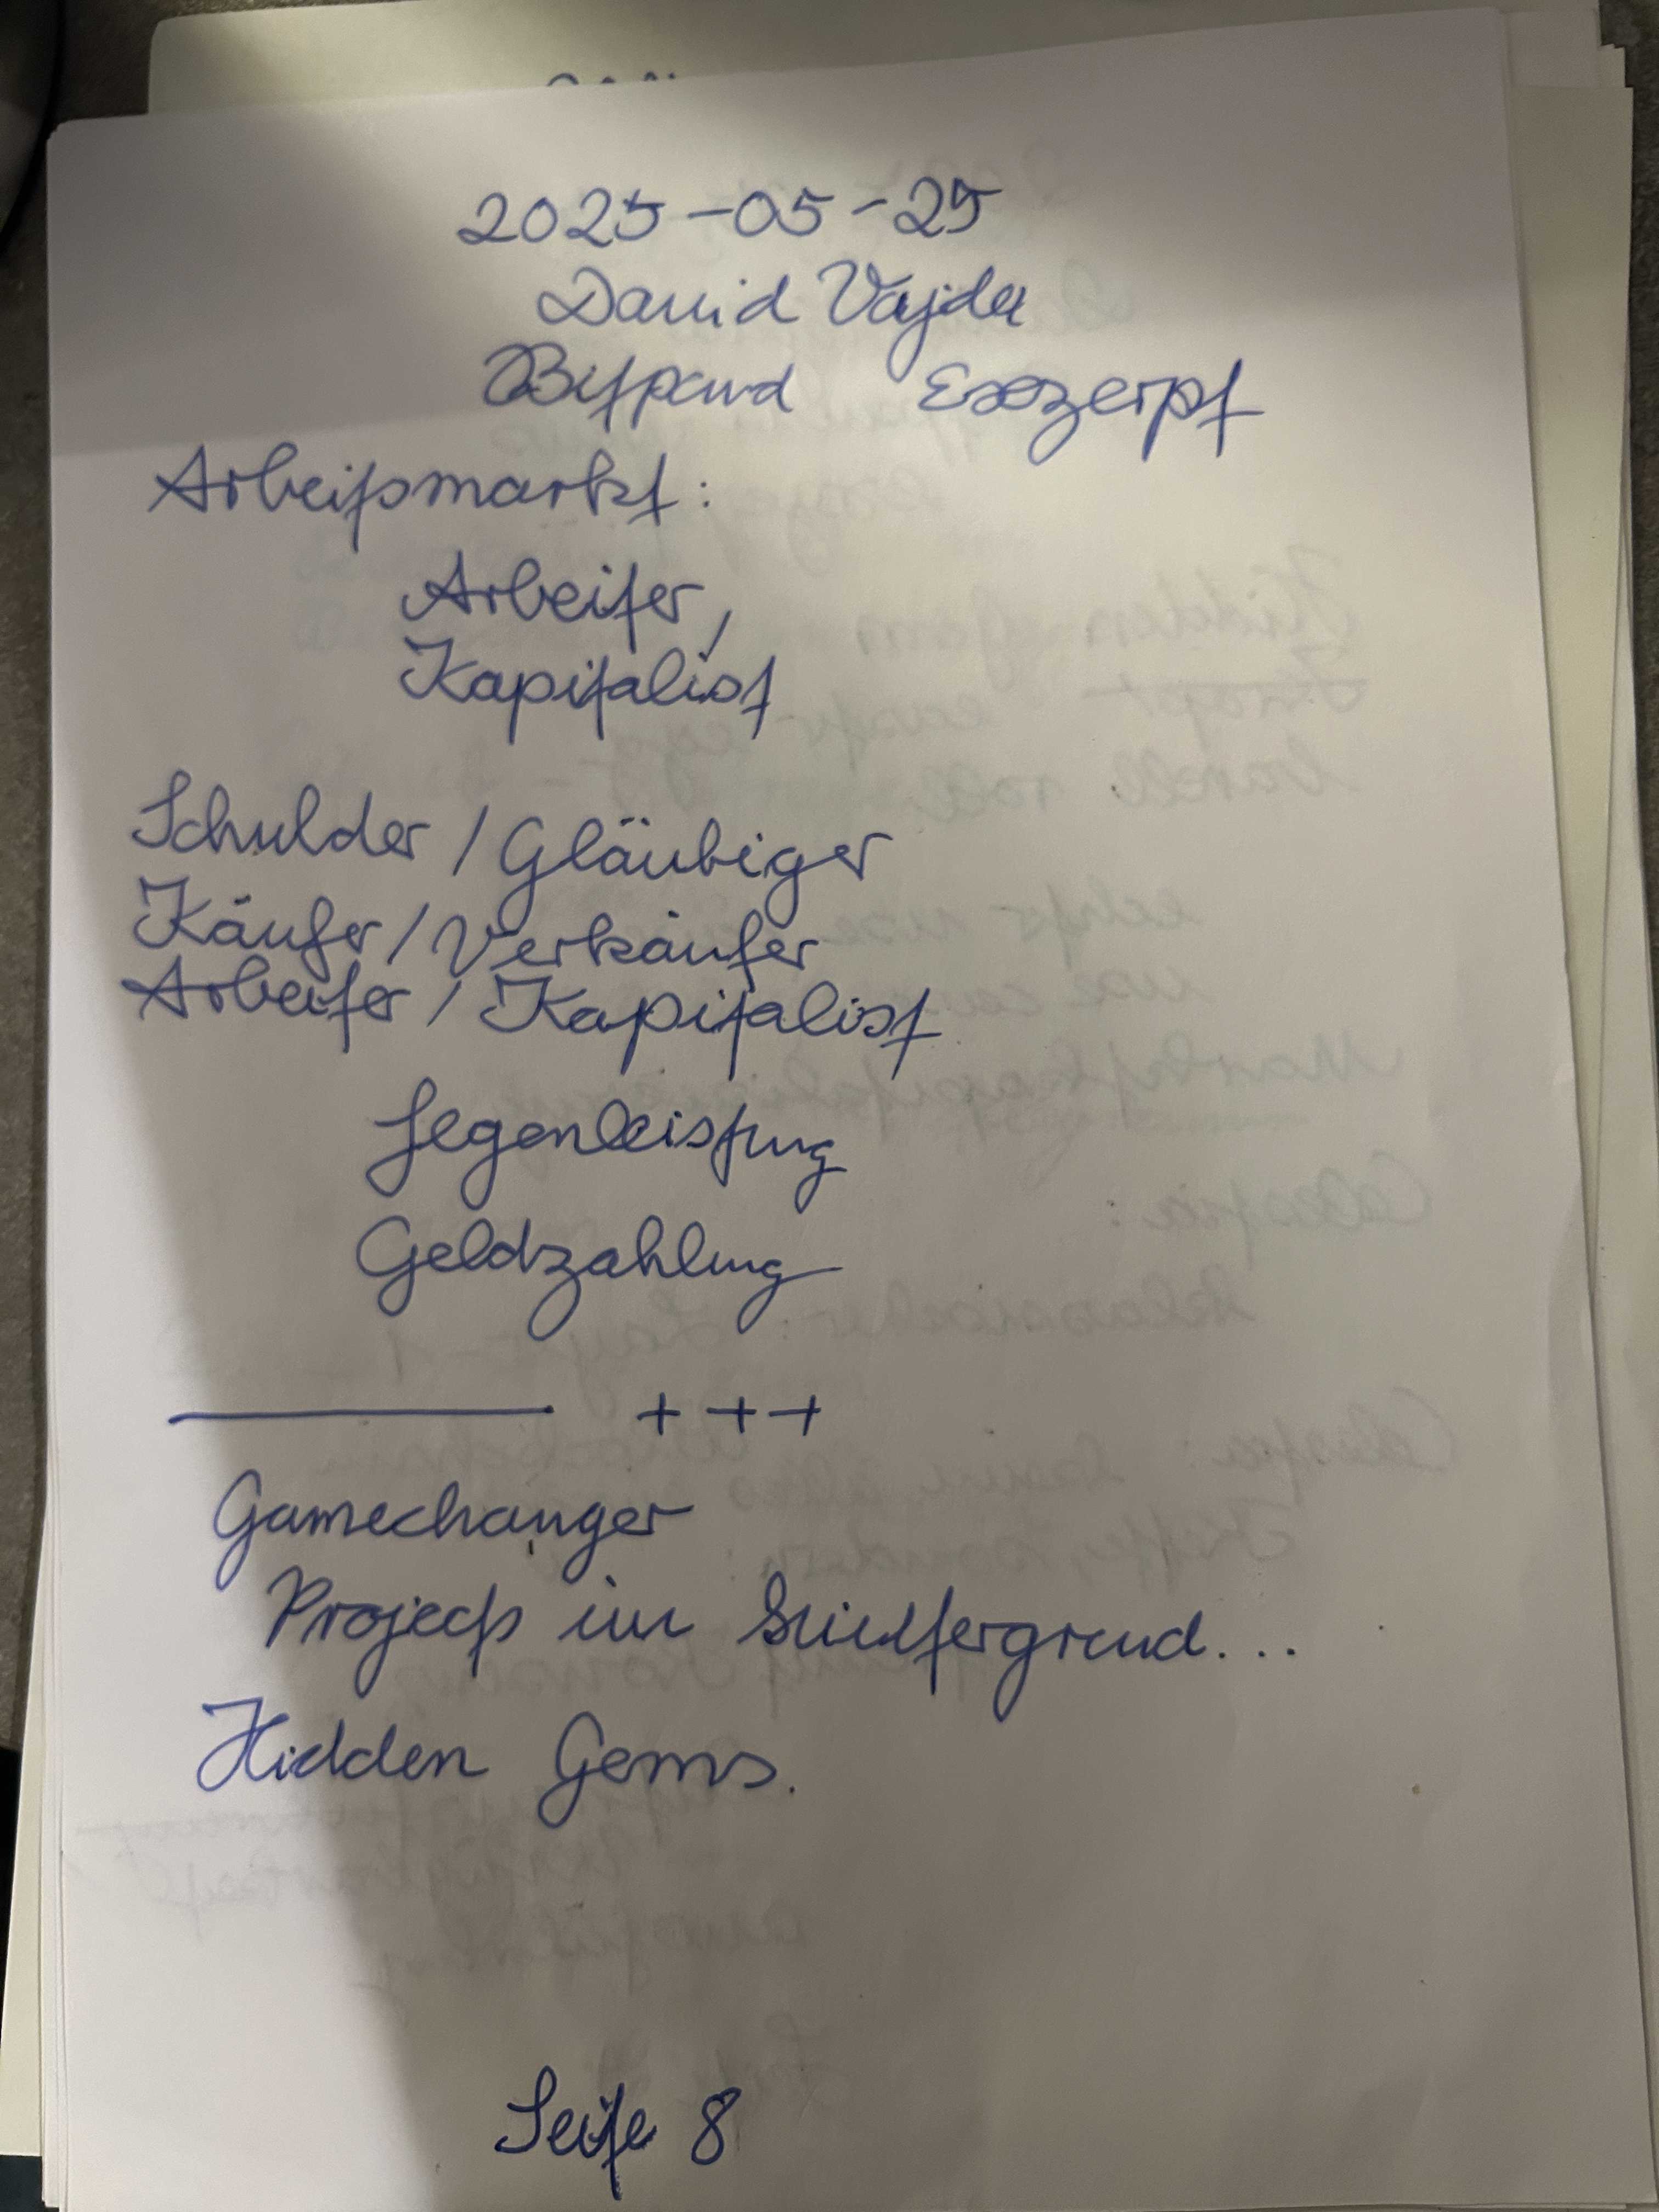 2025-05-25
David Vajda
Bitpand Exzerpt
Arbeitsmarkt:
Arbeiter,
Kapitalist
Schulder / Gläubiger
Käufer / Verkäufer
Arbeiter / Kapitalist
Gegenleistung
Geldzahlung
+ + +
Gamechanger
Projects im
Hidden Gems.
Seite 8